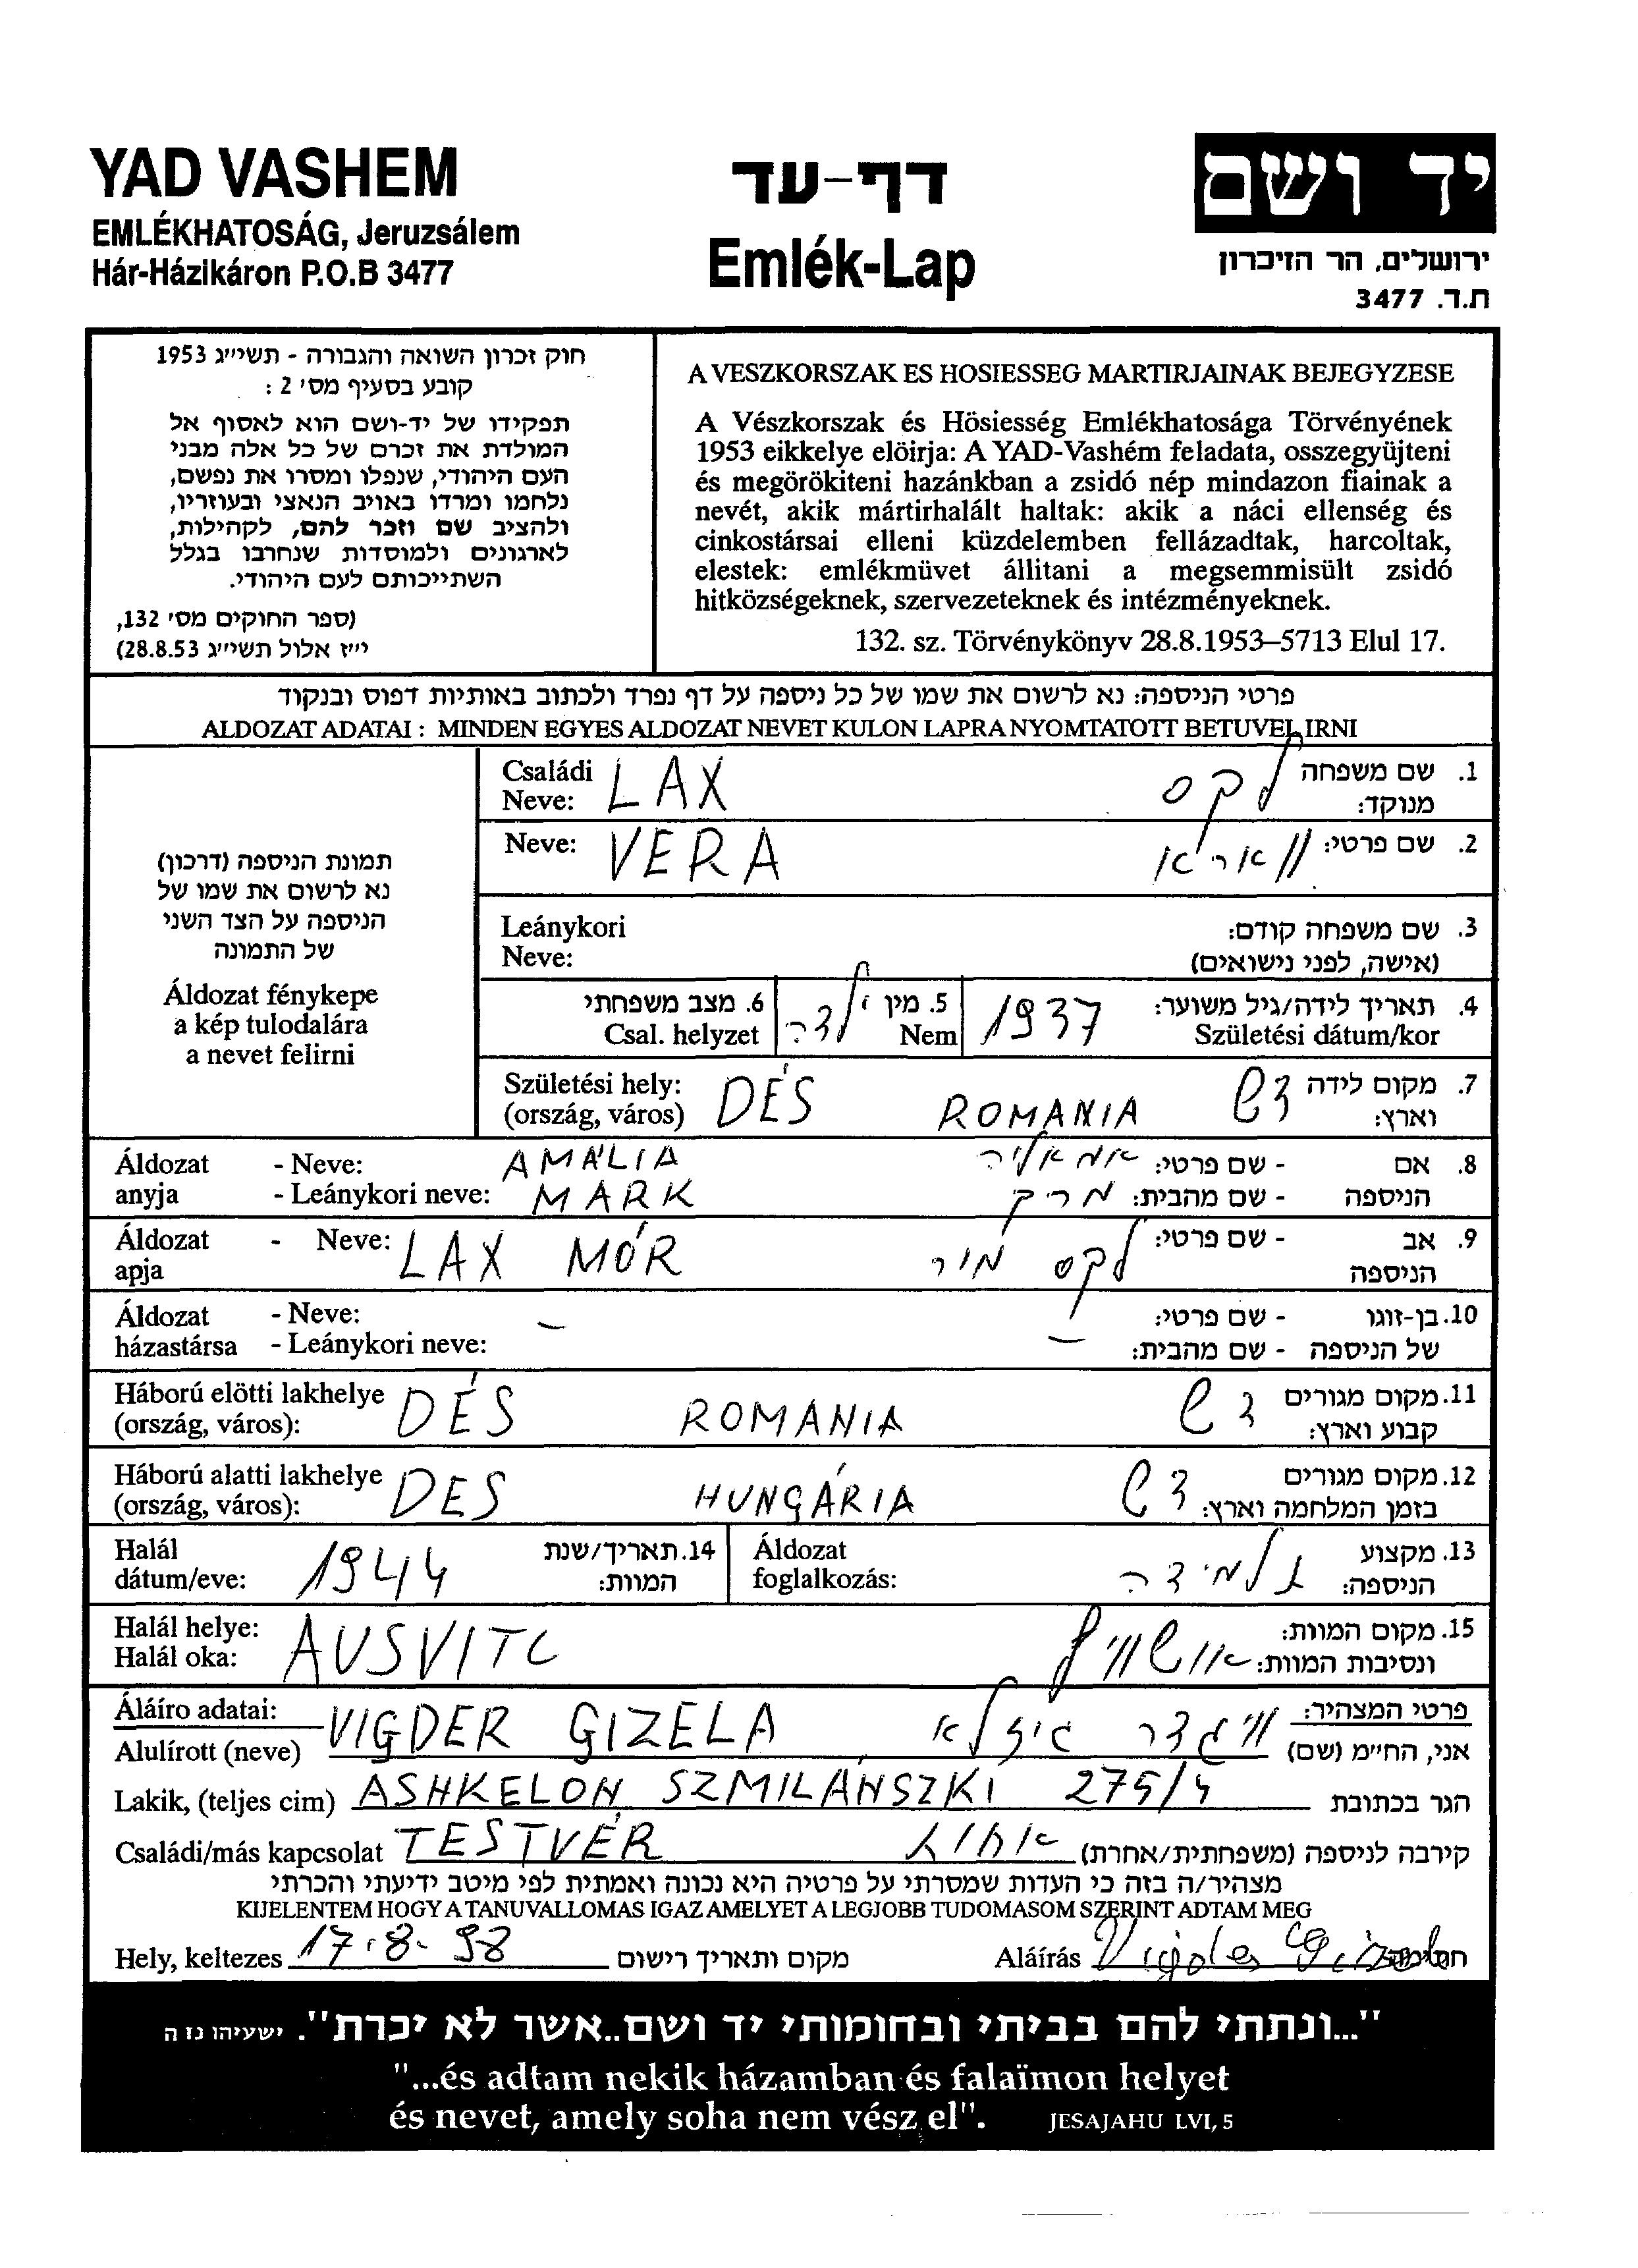 YAD VASHEM
EMLÉKHATOSÁG, Jeruzsálem
Hár-Házikáron P.O.B 3477
דף-עד
Emlék-Lap
יד ושם
ירושלים, הר הזיכרון
ת.ד. 3477
חוק זכרון השואה והגבורה - תשי״ג 1953
קובע בסעיף מס׳ 2 :
תפקידו של יד-ושם הוא לאסוף אל
המולדת את זכרם של כל אלה מבני
העם היהודי, שנפלו ומסרו את נפשם,
נלחמו ומרדו באויב הנאצי ובעוזריו,
ולהציב שם וזכר להם, לקהילות,
לארגונים ולמוסדות שנחרבו בגלל
השתייכותם לעם היהודי.
(ספר החוקים מס׳ 132,
י״ז אלול תשי״ג 28.8.53)
A VESZKORSZAK ES HOSIESSEG MARTIRJAINAK BEJEGYZESE
A Vészkorszak és Hösiesség Emlékhatosága Törvényének
1953 eikkelye elöirja: A YAD-Vashém feladata, osszegyüjteni
és megörökiteni hazánkban a zsidó nép mindazon fiainak a
nevét, akik mártirhalált haltak: akik a náci ellenség és
cinkostársai elleni küzdelemben fellázadtak, harcoltak,
elestek: emlékmüvet állitani a megsemmisült zsidó
hitközségeknek, szervezeteknek és intézményeknek.
132. sz. Törvénykönyv 28.8.1953–5713 Elul 17.
פרטי הניספה: נא לרשום את שמו של כל ניספה על דף נפרד ולכתוב באותיות דפוס ובנקוד
ALDOZAT ADATAI : MINDEN EGYES ALDOZAT NEVET KULON LAPRA NYOMTATOTT BETUVEL IRNI
תמונת הניספה (דרכון)
נא לרשום את שמו של
הניספה על הצד השני
של התמונה
Áldozat fénykepe
a kép tulodalára
a nevet felirni
Családi Neve: LAX לקס 1. שם משפחה מנוקד:
Neve: VERA ווארא 2. שם פרטי:
Leánykori Neve: 3. שם משפחה קודם: (אישה, לפני נישואים)
6. מצב משפחתי Csal. helyzet 5. מין Nem ילדה 1937 4. תאריך לידה/גיל משוער: Születési dátum/kor
Születési hely: (ország, város) DÉS ROMANIA דש 7. מקום לידה וארץ:
Áldozat anyja - Neve: AMÁLIA אמאליה - שם פרטי: 8. אם הניספה
- Leánykori neve: MARK מרק - שם מהבית:
Áldozat apja - Neve: LAX MÓR לקס מור - שם פרטי: 9. אב הניספה
Áldozat házastársa - Neve: — - שם פרטי: 10. בן-זוגו של הניספה
- Leánykori neve: — - שם מהבית:
Háború elötti lakhelye (ország, város): DÉS ROMANIA דש 11. מקום מגורים קבוע וארץ:
Háború alatti lakhelye (ország, város): DES HUNGÁRIA דש 12. מקום מגורים בזמן המלחמה וארץ:
Halál dátum/eve: 1944 14. תאריך/שנת המוות: Áldozat foglalkozás: תלמידה 13. מקצוע הניספה:
Halál helye: Halál oka: AUSVITC אושוויץ 15. מקום המוות: ונסיבות המוות:
Áláíro adatai: פרטי המצהיר:
Alulírott (neve) VIGDER GIZELA ויגדר גיזלא אני, החי״מ (שם)
Lakik, (teljes cim) ASHKELON SZMILÁNSZKI 275/4 הגר בכתובת
Családi/más kapcsolat TESTVÉR אחות קירבה לניספה (משפחתית/אחרת)
מצהיר/ה בזה כי העדות שמסרתי על פרטיה היא נכונה ואמתית לפי מיטב ידיעתי והכרתי
KIJELENTEM HOGY A TANUVALLOMAS IGAZ AMELYET A LEGJOBB TUDOMASOM SZERINT ADTAM MEG
Hely, keltezes 17.8.98 מקום ותאריך רישום Aláírás Vigder Gizela חתימה
"...ונתתי להם בביתי ובחומותי יד ושם..אשר לא יכרת". ישעיהו נז ה
"...és adtam nekik házamban és falaïmon helyet
és nevet, amely soha nem vész el". JESAJAHU LVI, 5